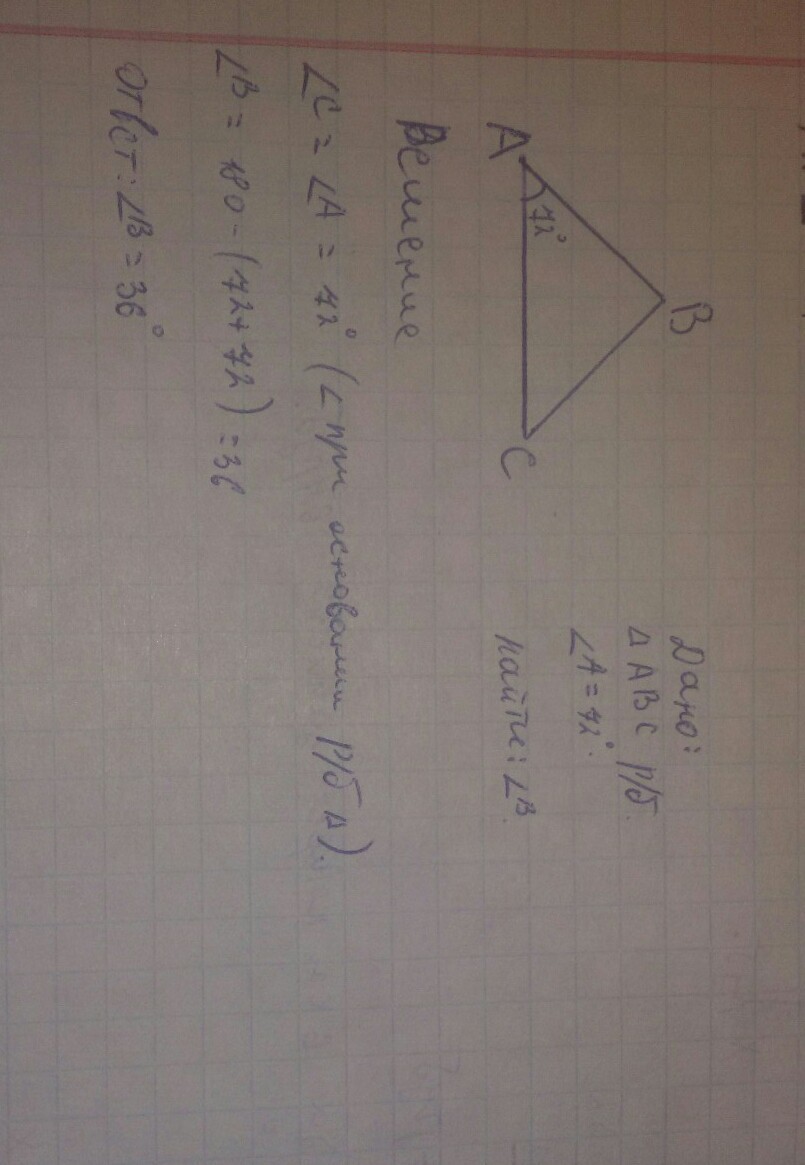 B
A
72°
C
Дано:
Δ ABC р/б.
∠A = 72°.
Найти: ∠B.
Решение
∠C = ∠A = 72° (∠ при основании р/б Δ).
∠B = 180 - (72 + 72) = 36
Ответ: ∠B = 36°